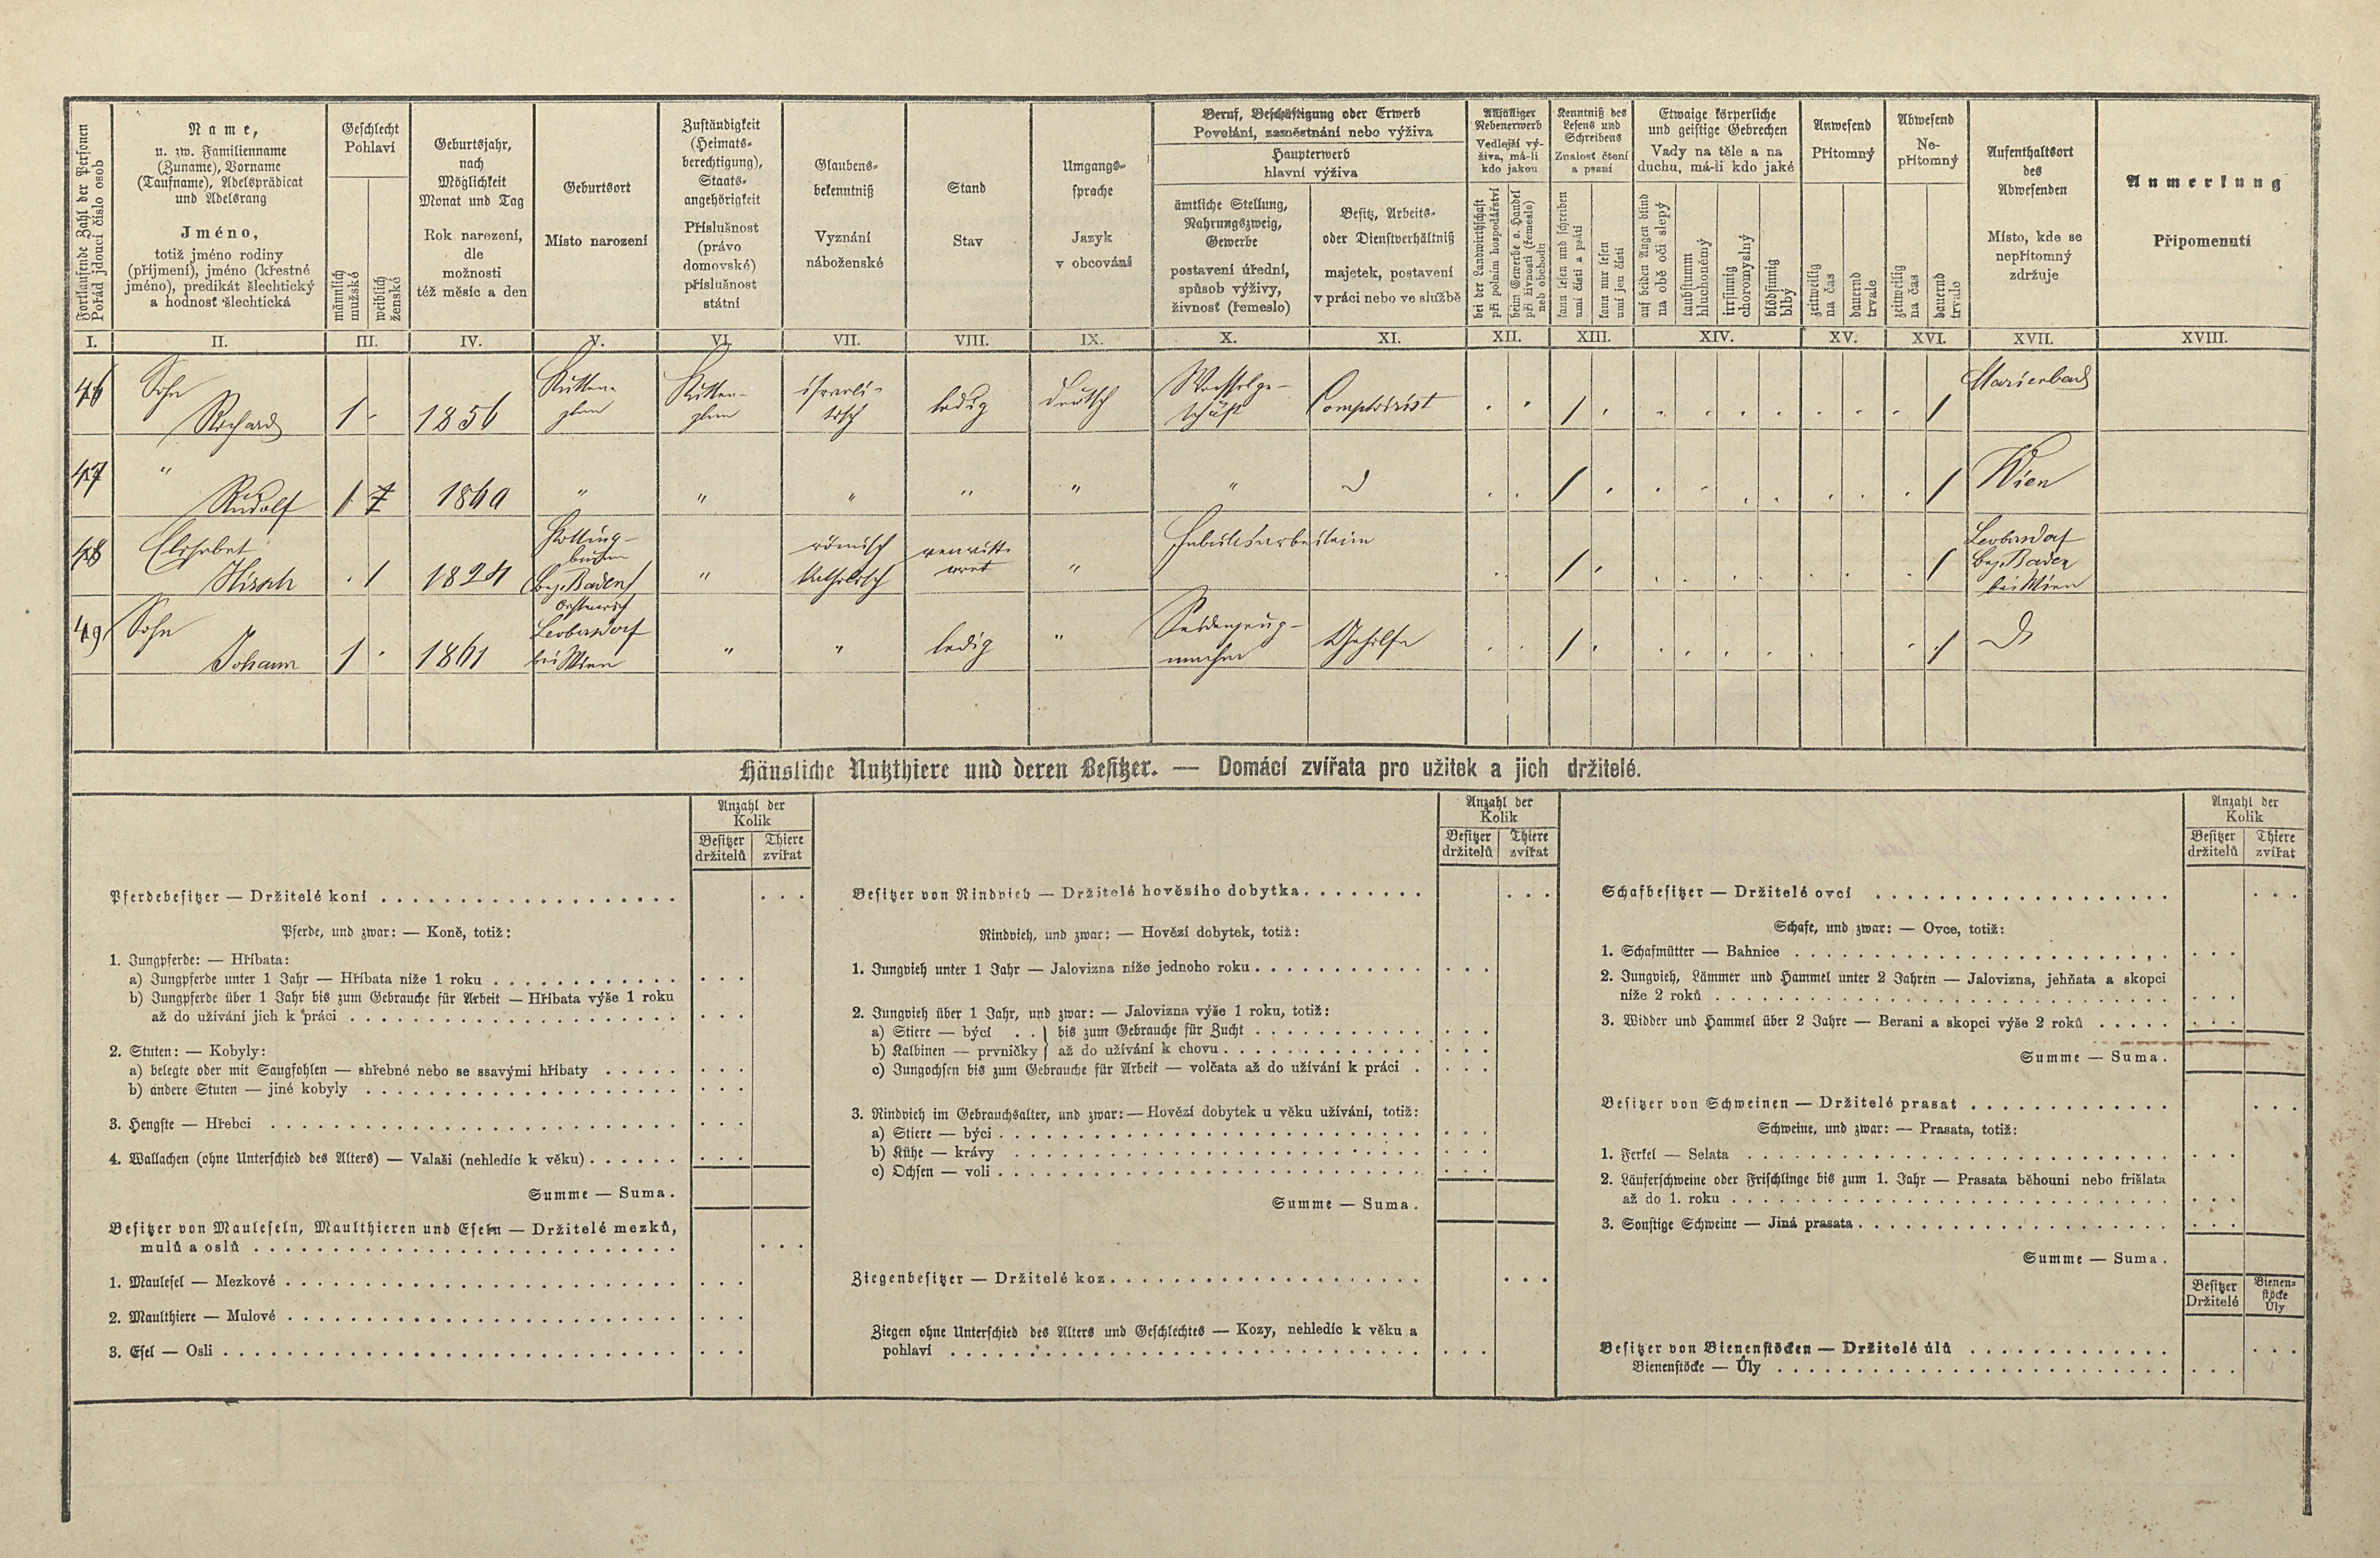 Fortlaufende Zahl der Personen
Pořád jdoucí číslo osob
Name,
u. zw. Familienname
(Zuname), Vorname
(Taufname), Adelsprädicat
und Adelsrang
Jméno,
totiž jméno rodiny
(příjmení), jméno (křestné
jméno), predikát šlechtický
a hodnosť šlechtická
Geschlecht
Pohlaví
männlich
mužské
weiblich
ženské
Geburtsjahr,
nach
Möglichkeit
Monat und Tag
Rok narození,
dle
možnosti
též měsíc a den
Geburtsort
Místo narození
Zuständigkeit
(Heimats-
berechtigung),
Staats-
angehörigkeit
Příslušnost
(právo
domovské)
příslušnost
státní
Glaubens-
bekenntniß
Vyznání
náboženské
Stand
Stav
Umgangs-
sprache
Jazyk
v obcování
Beruf, Beschäftigung oder Erwerb
Povolání, zaměstnání nebo výživa
Haupterwerb
hlavní výživa
ämtliche Stellung,
Nahrungszweig,
Gewerbe
postavení úřední,
spůsob výživy,
živnosť (řemeslo)
Besitz, Arbeits-
oder Dienstverhältniß
majetek, postavení
v práci nebo ve službě
Allfälliger
Nebenerwerb
Vedlejší vý-
živa, má-li
kdo jakou
bei der Landwirthschaft
při polním hospodářství
beim Gewerbe o. Handel
při živnosti (řemeslo)
neb obchodu
Kenntniß des
Lesens und
Schreibens
Znalosť čtení
a psaní
kann lesen und schreiben
umí čísti a psáti
kann nur lesen
umí jen čísti
Etwaige körperliche
und geistige Gebrechen
Vady na těle a na
duchu, má-li kdo jaké
auf beiden Augen blind
na obě oči slepý
taubstumm
hluchoněmý
irrsinnig
choromyslný
blödsinnig
blbý
Anwesend
Přítomný
zeitweilig
na čas
dauernd
trvale
Abwesend
Ne-
přítomný
zeitweilig
na čas
dauernd
trvale
Aufenthaltsort
des
Abwesenden
Místo, kde se
nepřítomný
zdržuje
Anmerkung
Připomenutí
I. II. III. IV. V. VI. VII. VIII. IX. X. XI. XII. XIII. XIV. XV. XVI. XVII. XVIII.
46 Sohn Richard 1 . 1856 Kuttenplan Kuttenplan israelitisch ledig deutsch Comptoirist . . 1 . . . . . . . . 1 Marienbad
47 " Rudolf 1 1860 " " " " " " . . 1 . . . . . . . . 1 Wien
48 Elisabet Hirsch . 1 1824 (Bez. Baden) " römisch katholisch verwittwet " Fabriksarbeiterin . . 1 . . . . . . . . 1 Leobersdorf Bez. Baden bei Wien
49 Sohn Johann 1 . 1861 Leobersdorf bei Wien " " ledig " Seidenzeugmacher Gehilfe . . 1 . . . . . . . . 1
Häusliche Nutzthiere und deren Besitzer. — Domácí zvířata pro užitek a jich držitelé.
Anzahl der
Kolik
Besitzer
držitelů
Thiere
zvířat
Pferdebesitzer — Držitelé koní
Pferde, und zwar: — Koně, totiž:
1. Jungpferde: — Hříbata:
a) Jungpferde unter 1 Jahr — Hříbata níže 1 roku
b) Jungpferde über 1 Jahr bis zum Gebrauche für Arbeit — Hříbata výše 1 roku
až do užívání jich k práci
2. Stuten: — Kobyly:
a) belegte oder mit Saugfohlen — shřebné nebo se ssavými hříbaty
b) andere Stuten — jiné kobyly
3. Hengste — Hřebci
4. Wallachen (ohne Unterschied des Alters) — Valaši (nehledíc k věku)
Summe — Suma.
Besitzer von Mauleseln, Maulthieren und Eseln — Držitelé mezků,
mulů a oslů
1. Maulesel — Mezkové
2. Maulthiere — Mulové
3. Esel — Osli
Anzahl der
Kolik
Besitzer
držitelů
Thiere
zvířat
Besitzer von Rindvieh — Držitelé hovězího dobytka
Rindvieh, und zwar: — Hovězí dobytek, totiž:
1. Jungvieh unter 1 Jahr — Jalovizna níže jednoho roku
2. Jungvieh über 1 Jahr, und zwar: — Jalovizna výše 1 roku, totiž:
a) Stiere — býci . . } bis zum Gebrauche für Zucht
b) Kalbinen — prvničky } až do užívání k chovu
c) Jungochsen bis zum Gebrauche für Arbeit — volčata až do užívání k práci
3. Rindvieh im Gebrauchsalter, und zwar: — Hovězí dobytek u věku užívání, totiž:
a) Stiere — býci
b) Kühe — krávy
c) Ochsen — voli
Summe — Suma.
Ziegenbesitzer — Držitelé koz
Ziegen ohne Unterschied des Alters und Geschlechtes — Kozy, nehledíc k věku a
pohlaví
Anzahl der
Kolik
Besitzer
držitelů
Thiere
zvířat
Schafbesitzer — Držitelé ovcí
Schafe, und zwar: — Ovce, totiž:
1. Schafmütter — Bahnice
2. Jungvieh, Lämmer und Hammel unter 2 Jahren — Jalovizna, jehňata a skopci
níže 2 roků
3. Widder und Hammel über 2 Jahre — Berani a skopci výše 2 roků
Summe — Suma.
Besitzer von Schweinen — Držitelé prasat
Schweine, und zwar: — Prasata, totiž:
1. Ferkel — Selata
2. Läuferschweine oder Frischlinge bis zum 1. Jahr — Prasata běhouni nebo frišlata
až do 1. roku
3. Sonstige Schweine — Jiná prasata
Summe — Suma.
Besitzer
Držitelé
Bienen-
stöcke
Úly
Besitzer von Bienenstöcken — Držitelé úlů
Bienenstöcke — Úly